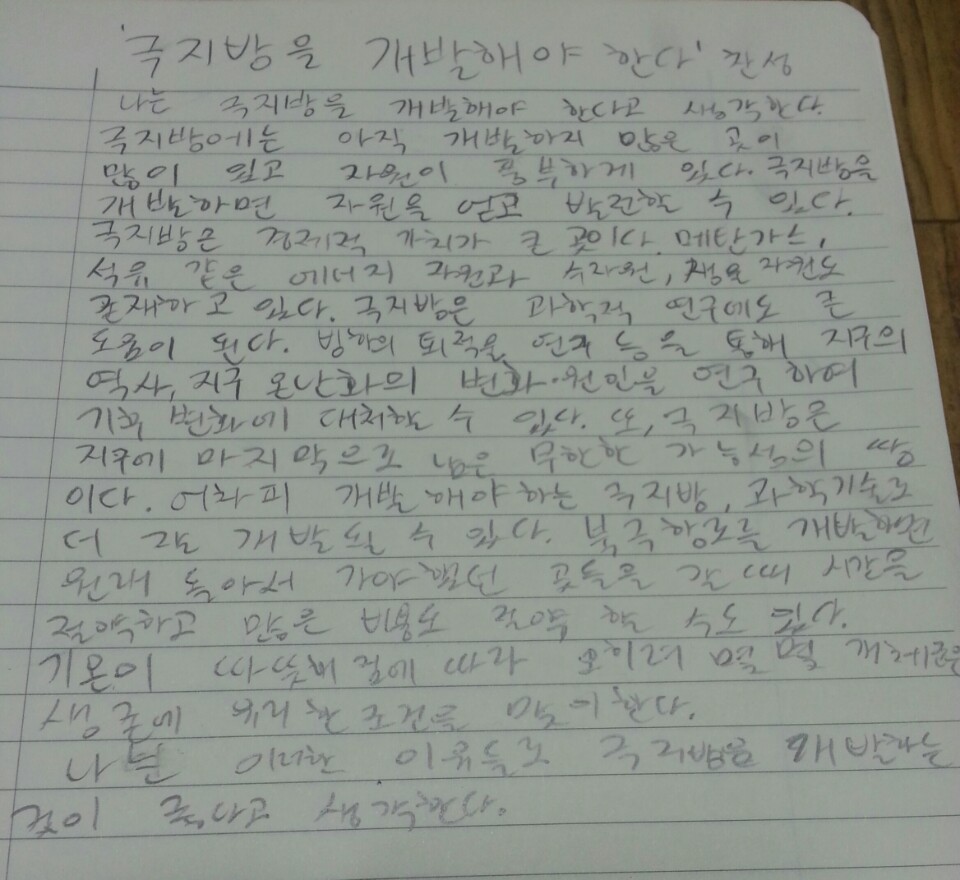 '극지방을 개발해야 한다' 찬성
나는 극지방을 개발해야 한다고 생각한다.
극지방에는 아직 개발하지 많은 곳이
많이 있고 자원이 풍부하게 있다. 극지방을
개발하면 자원을 얻고 발전할 수 있다.
극지방은 경제적 가치가 큰 곳이다. 메탄가스,
석유 같은 에너지 자원과 수자원, 생물자원도
존재하고 있다. 극지방은 과학적 연구에도 큰
도움이 된다. 빙하의 퇴적물 연구 등을 통해 지구의
역사, 지구 온난화의 변화·원인을 연구 하여
기후 변화에 대처할 수 있다. 또, 극지방은
지구에 마지막으로 남은 무한한 가능성의 땅
이다. 어차피 개발해야하는 극지방, 과학기술로
더 개발될 수 있다. 북극항로를 개발하면
원래 돌아서 가야했던 곳들을 갈 때 시간을
절약하고 많은 비용도 절약 할 수도 있다.
기온이 따뜻해짐에 따라 오히려 몇몇 개체군은
생존에 유리한 조건을 맞이한다.
나는 이러한 이유들로 극지방을 개발하는
것이 좋다고 생각한다.